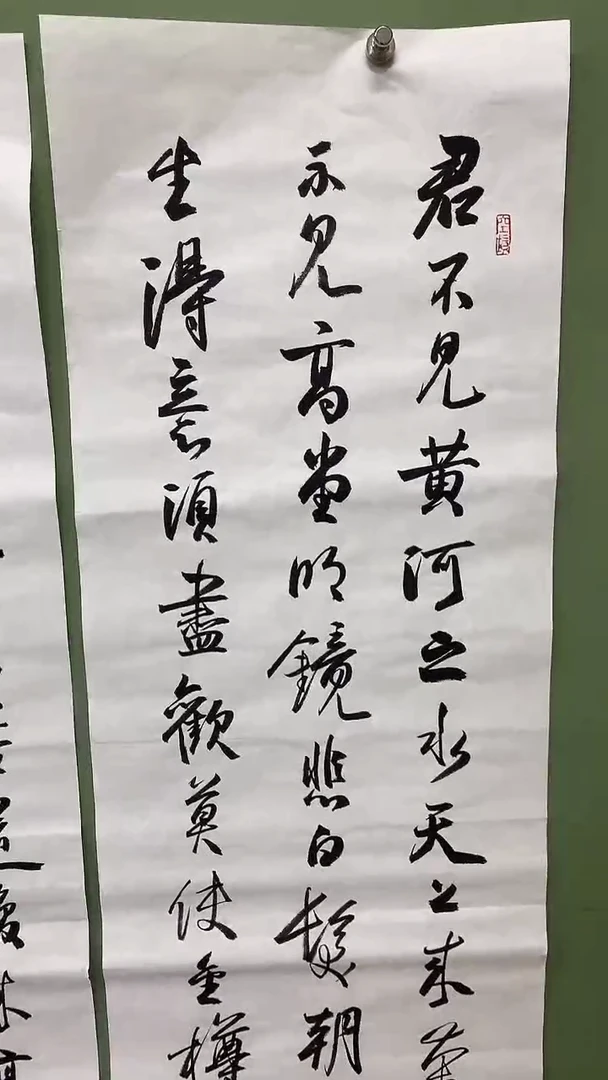 君不見黄河之水天上来奔
不見高堂明鏡悲白髮朝
生得意須盡歡莫使金樽